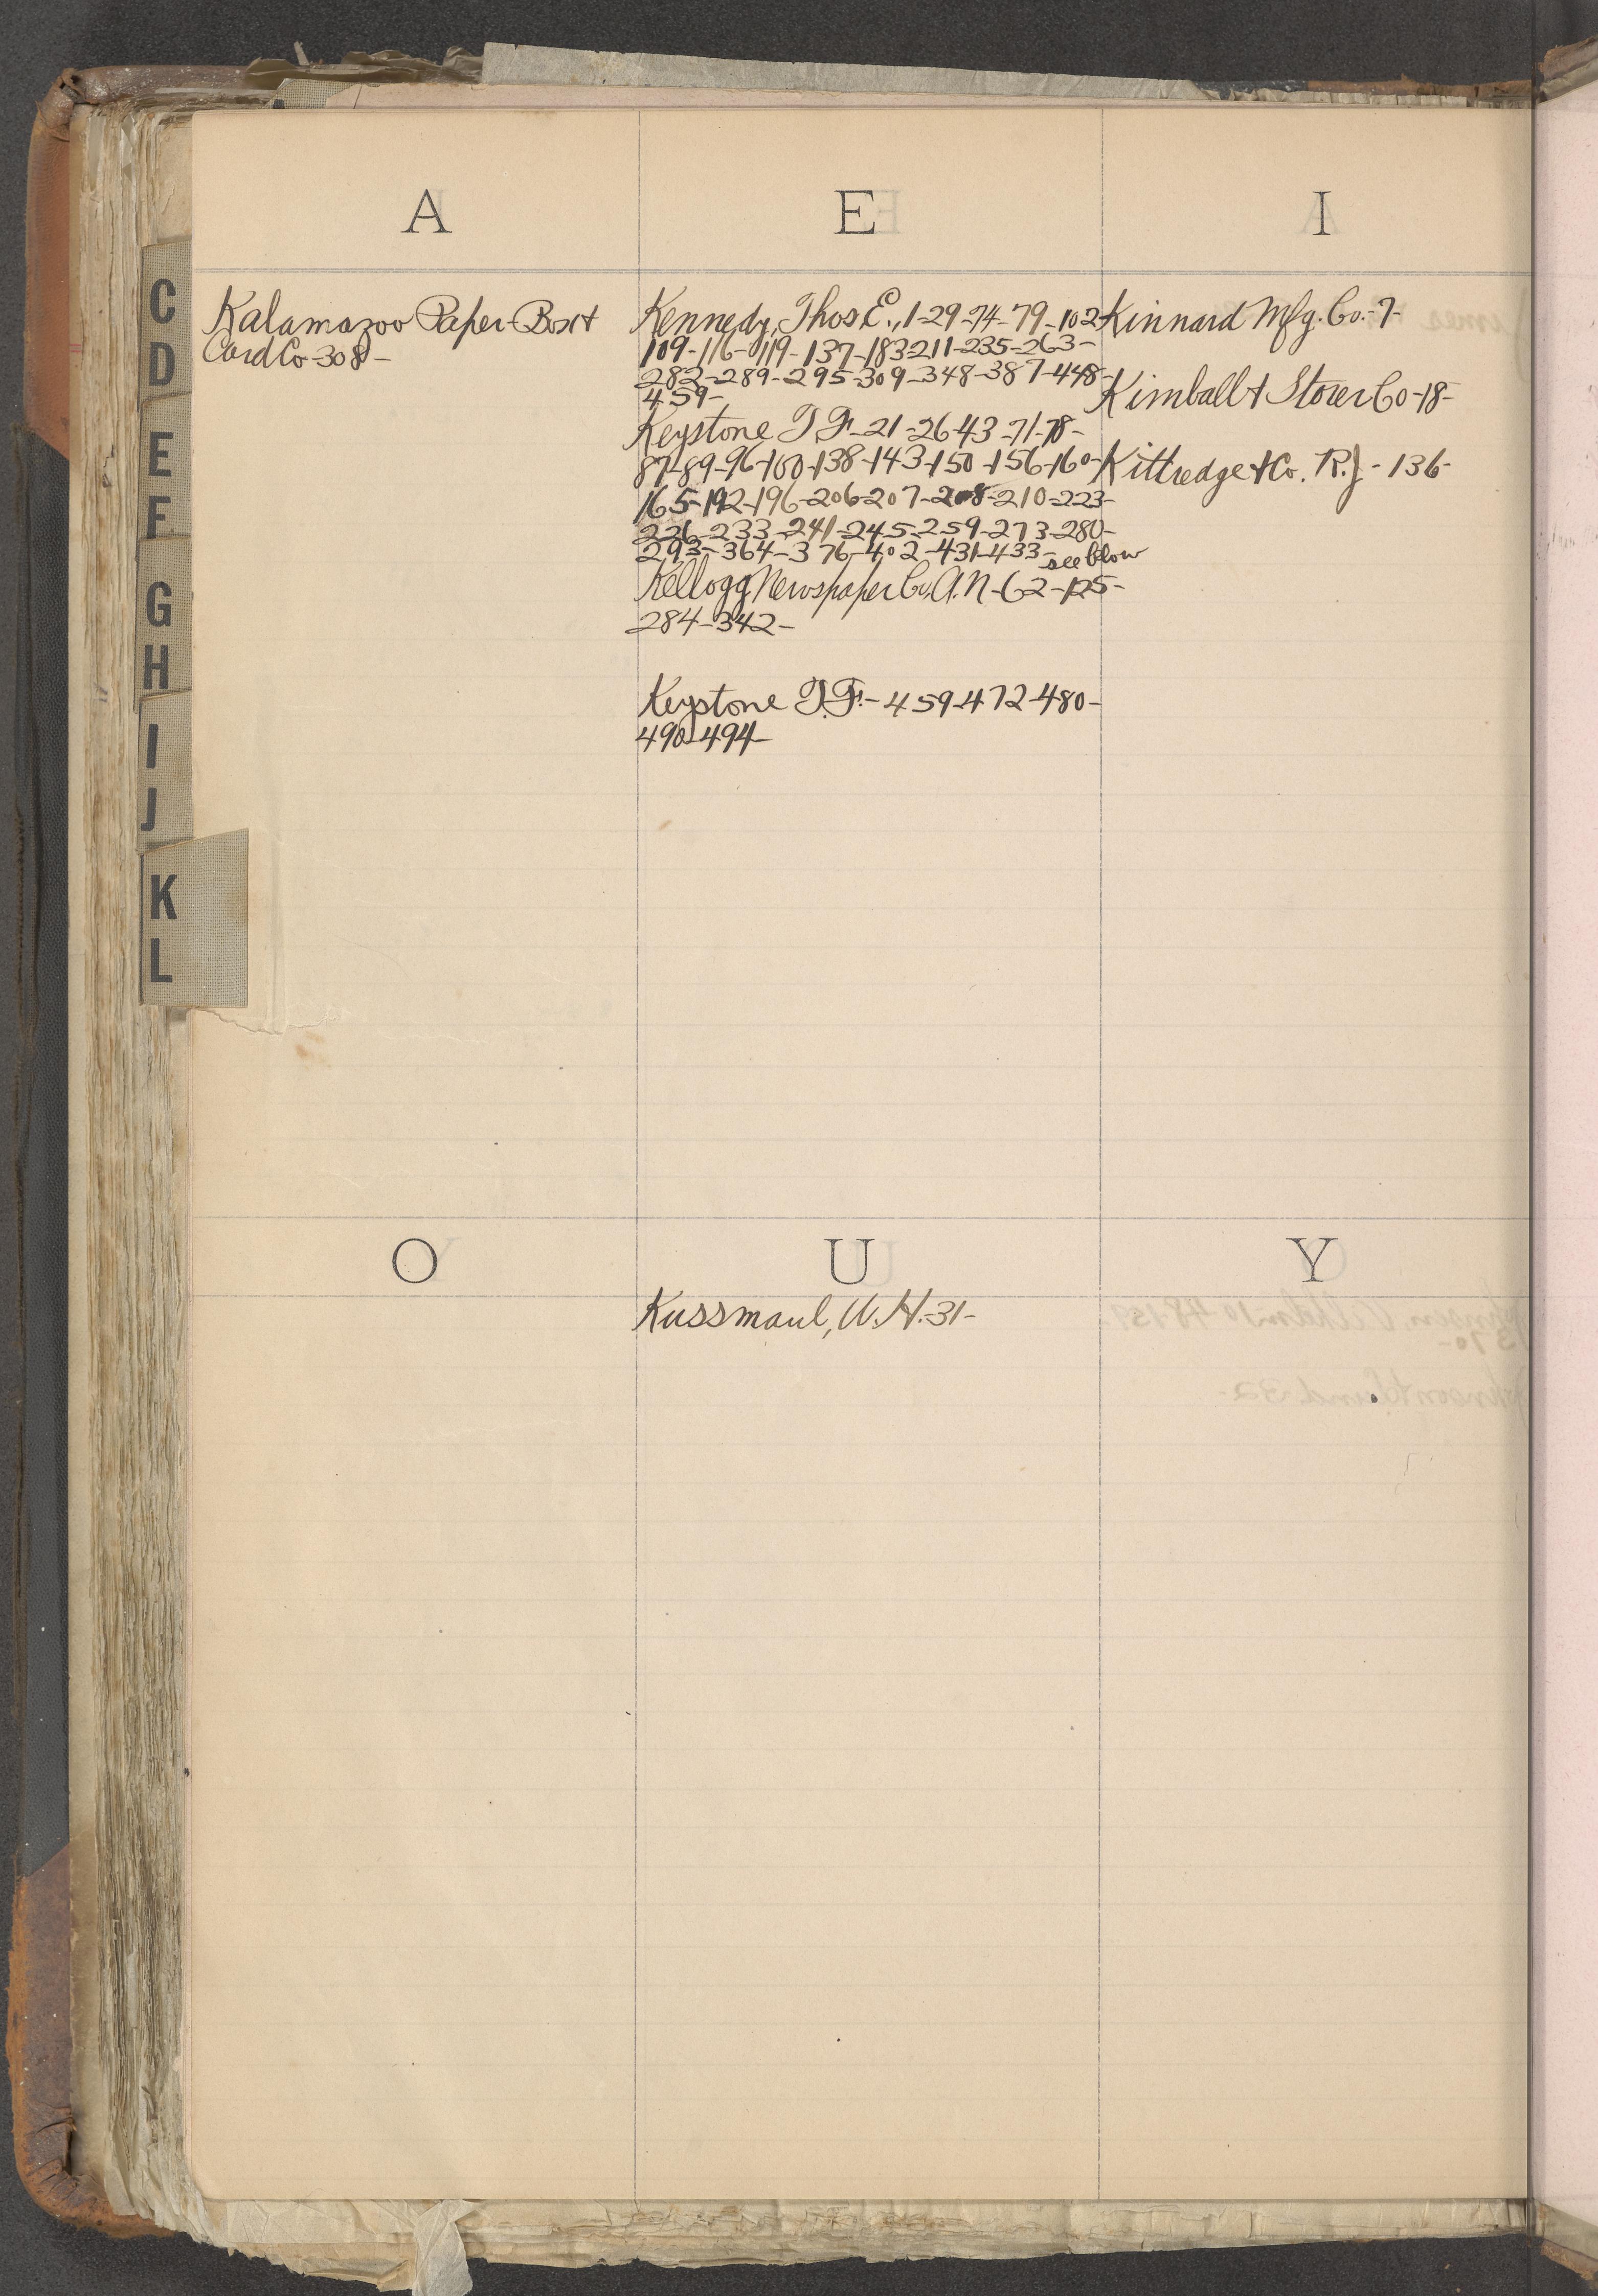 A
E
I
C
D
E
F
G
H
I
J
K
L
Kalamazoo Paper Box &
Card Co-308-
Kennedy, Thos E., 1-29-74-79-102-
109-116-119-137-183-211-235-263-
282-289-295-309-348-387-448-
459-
Keystone T.F-21-26-43-71-78-
87-89-96-100-138-143-150-156-160-
165-192-196-206-207-208-210-223-
226-233-241-245-259-273-280-
293-364-376-402-431-433-see below
Kellogg Newspaper Co, A.N-62-125-
284-342-
Keystone T.F.-459-472-480-
490-494-
Kinnard Mfg. Co.-7-
Kimball & Storer Co-18-
Kittredge & Co. R.J-136-
O
U
Y
Kussmaul, W.H.-31-